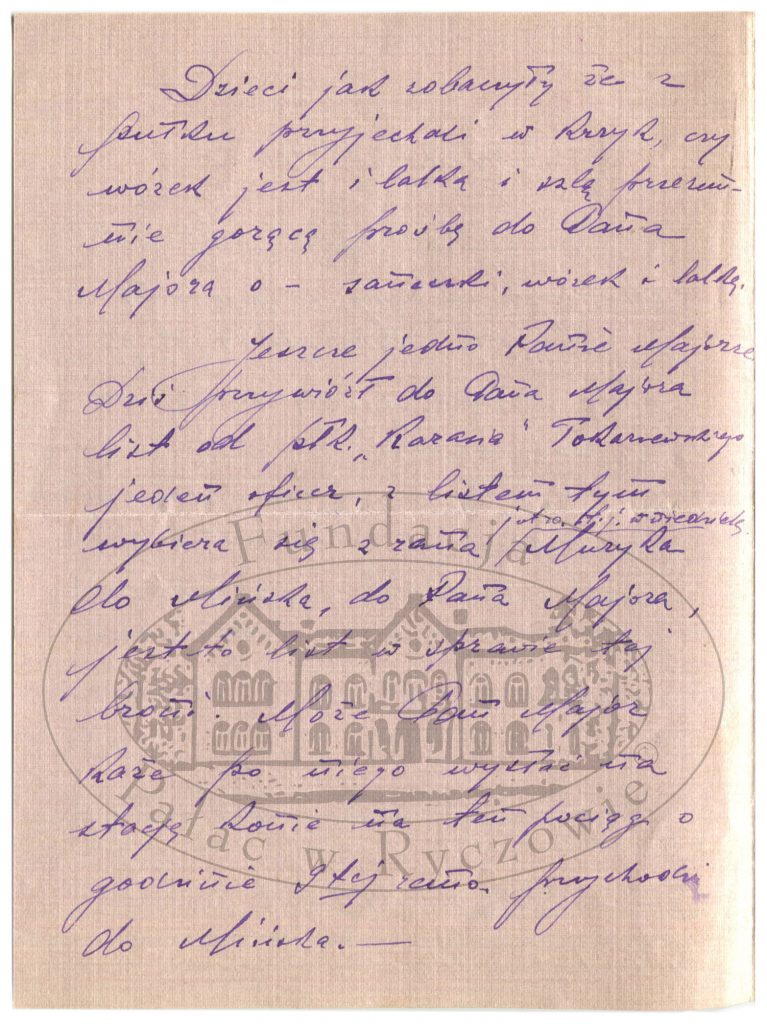 Dzieci jak zobaczyły że z
pułku przyjechali w krzyk, czy
wózek jest i lalka i szlą przezem-
nie gorącą prośbę do Pana
Majora o – saneczki, wózek i lalkę.
Jeszcze jedno Panie Majorze
Dziś przywiózł do Pana Majora
list od płk. „Karasia" Tokarzewskiego
jeden oficer, z listem tym
jutro, t.j. w niedzielę
wybiera się z rana Muzyka
do Mińska, do Pana Majora,
jest to list w sprawie tej
broni. Może Pan Major
każe po niego wysłać na
stację konie na ten pociąg o
godzinie 9tej rano przychodzi
do Mińska. —
Fundacja
Pałac w Ryczowie